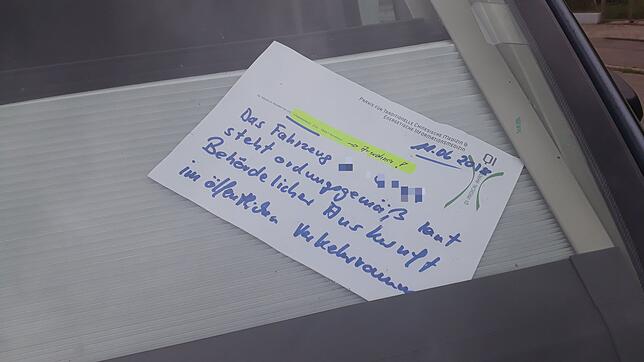 PRAXIS FÜR TRADITIONELLE CHINESISCHE MEDIZIN &
ENERGETISCHE INFORMATIONSMEDIZIN
Das Fahrzeug
steht ordnungsgemäß laut
Behördelicher Auskunft
im öffentlichen Verkehrsraum